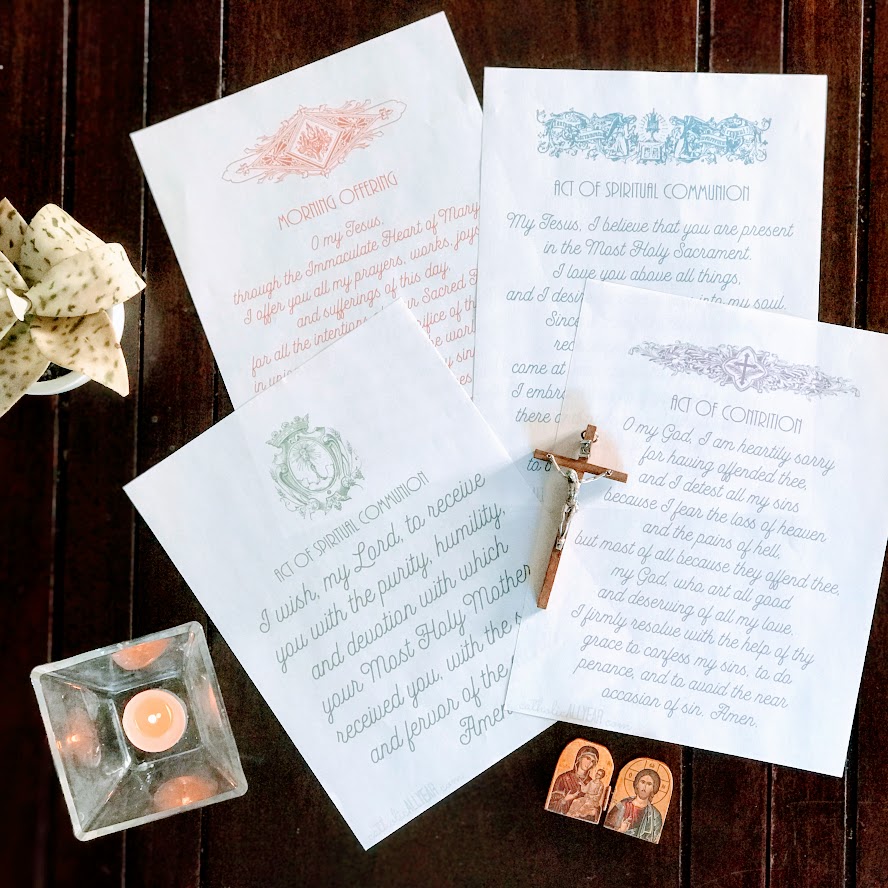 MORNING OFFERING
O my Jesus,
through the Immaculate Heart of Mary
I offer you all my prayers, works, joys
and sufferings of this day,
for all the intentions of
ACT OF SPIRITUAL COMMUNION
My Jesus, I believe that you are present
in the Most Holy Sacrament.
I love you above all things,
and I into my soul.
Since
come at
I
there
to
ACT OF SPIRITUAL COMMUNION
I wish, my Lord, to receive
you with the purity, humility,
and devotion with which
your Most Holy Mother
received you, with the
and fervor of the
Amen.
ACT OF CONTRITION
O my God, I am heartily sorry
for having offended thee,
and I detest all my sins
because I fear the loss of heaven
and the pains of hell;
but most of all because they offend thee,
my God, who art all good
and deserving of all my love.
I firmly resolve with the help of thy
grace to confess my sins, to do
penance, and to avoid the near
occasion of sin. Amen.
catholicALLYEAR.com